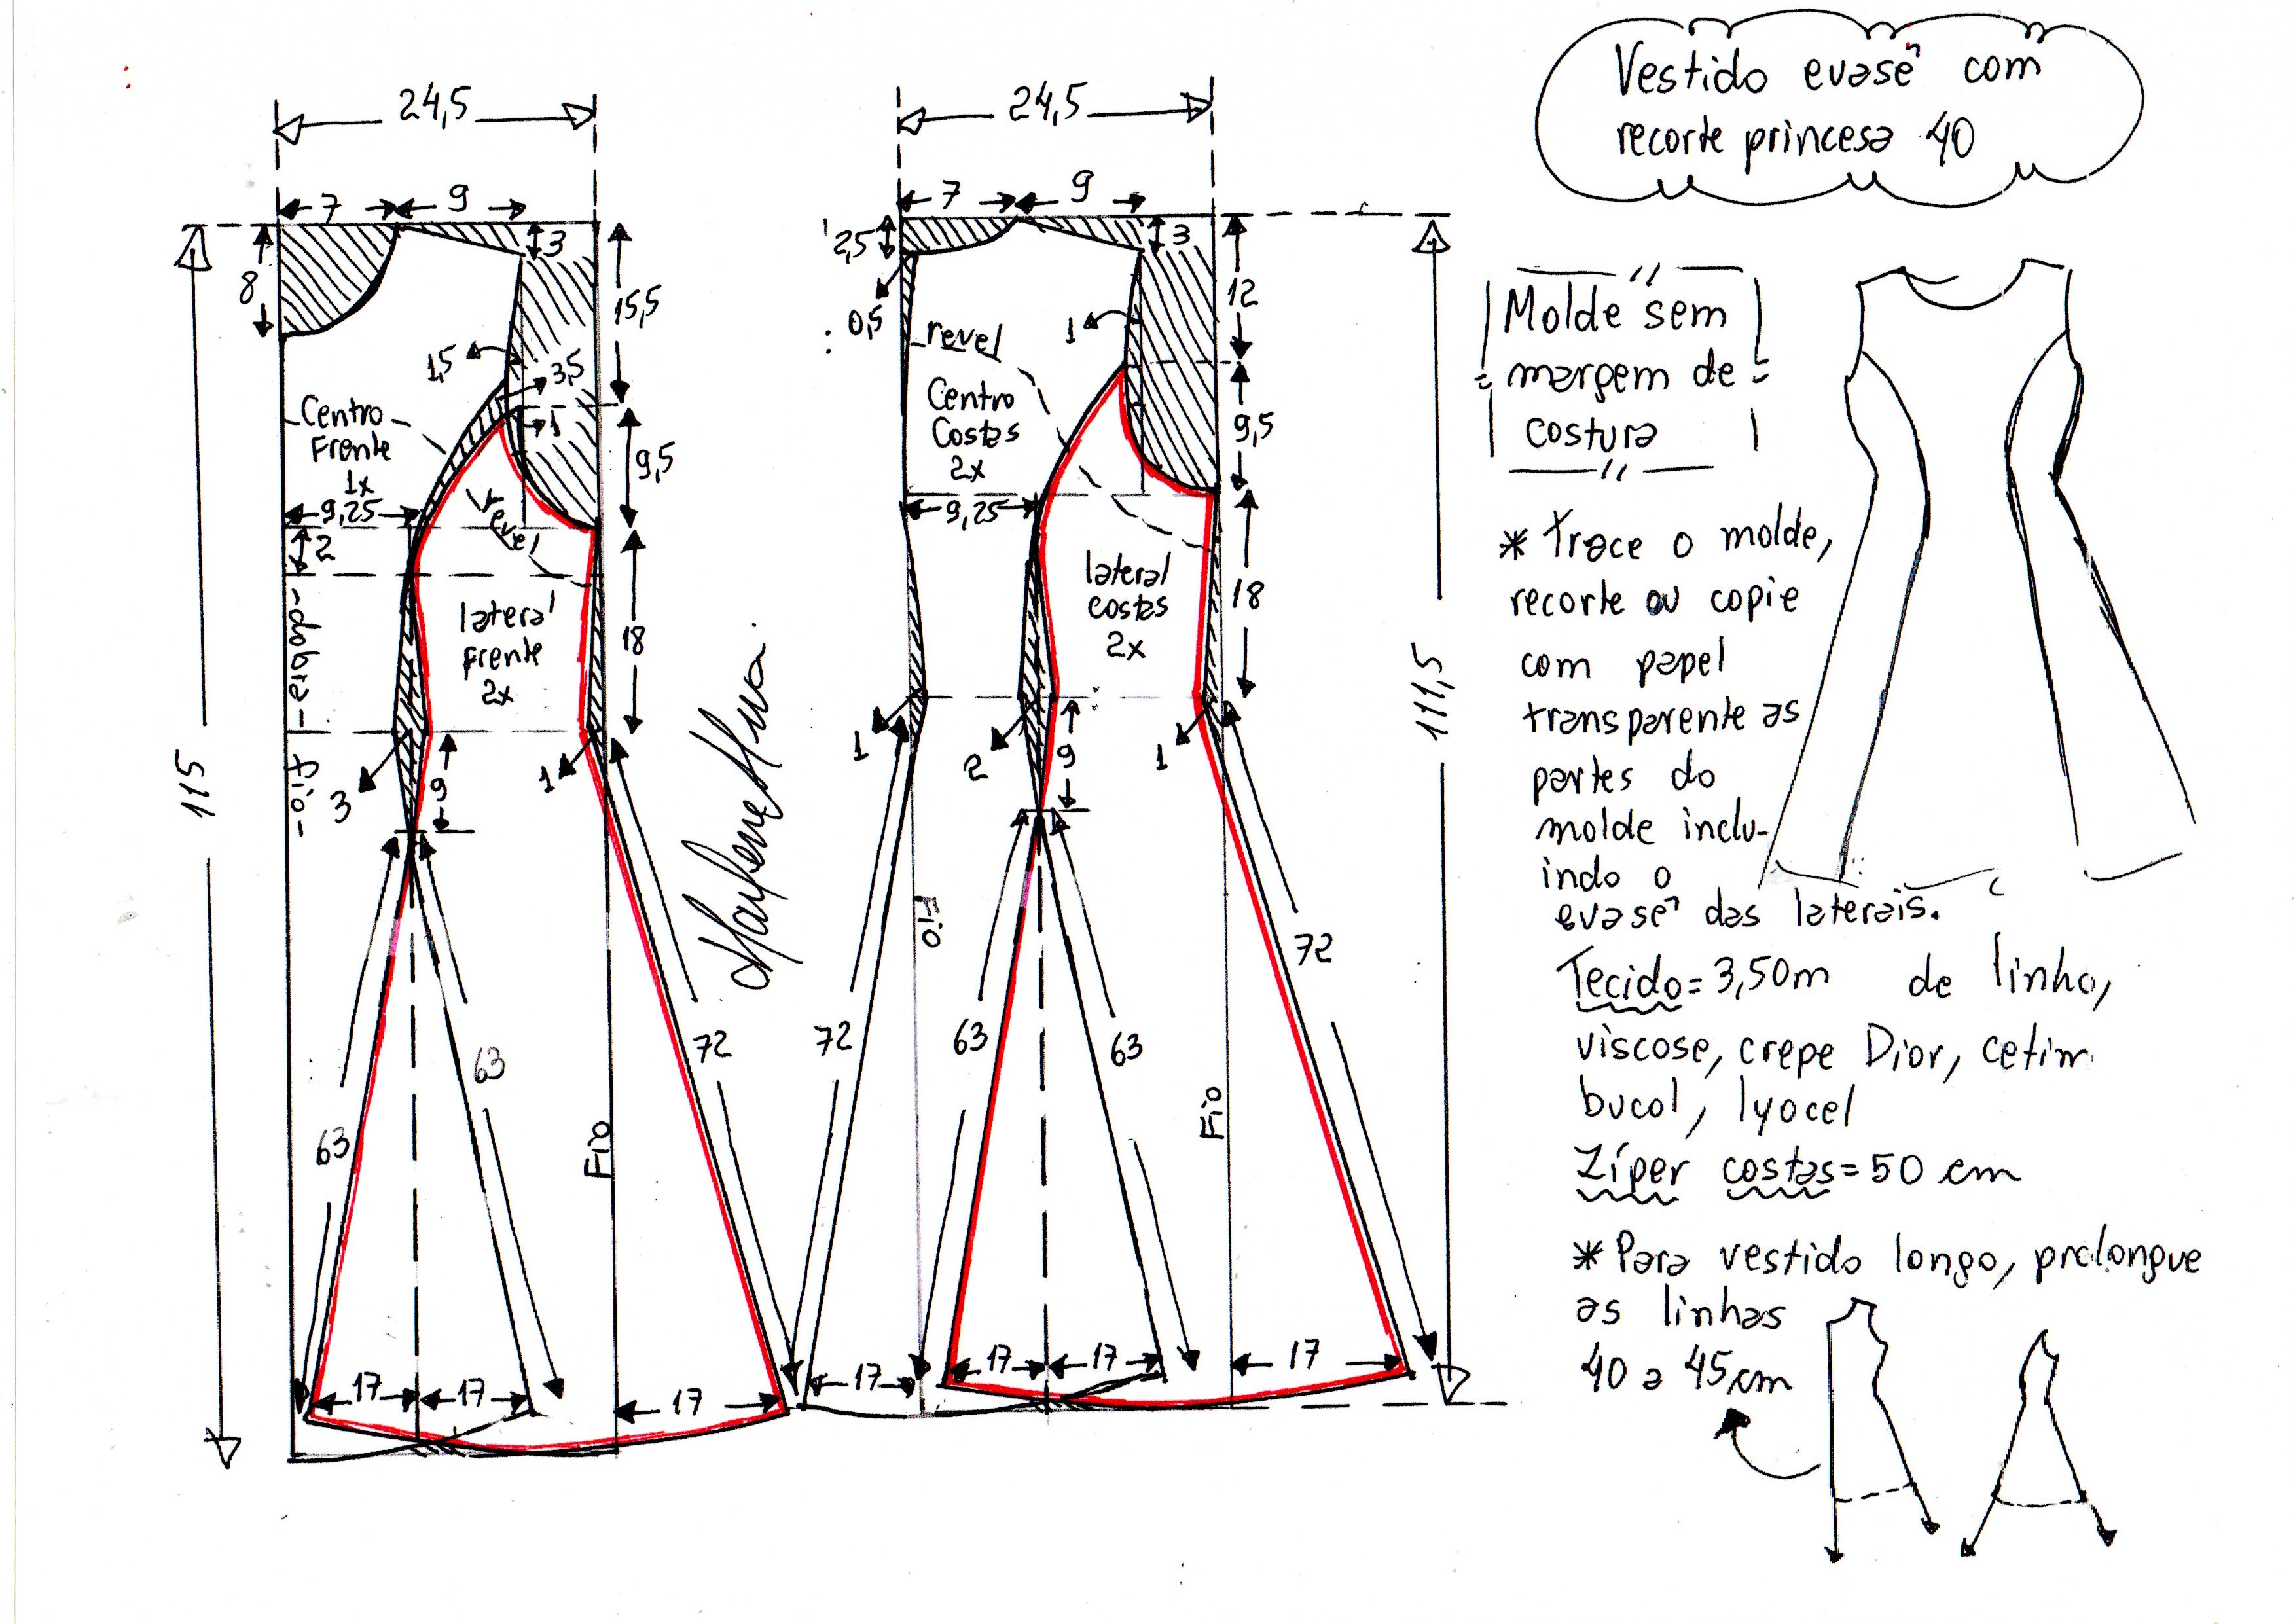 24,5
7
9
8
3
15,5
1,5
3,5
1
Centro
Frente
1x
9,5
9,25
revel
2
lateral
frente
2x
18
-dobra-
fio-
3
1
9
115
63
63
72
Fio
17
17
17
24,5
7
9
2,5
3
12
0,5
revel
1
Centro
Costas
2x
9,5
9,25
lateral
costas
2x
18
1
2
1
9
111,5
Fio
72
72
63
63
Fio
17
17
17
17
Vestido evasê com
recorte princesa 40
Molde sem
margem de
costura
* Trace o molde,
recorte ou copie
com papel
transparente as
partes do
molde inclu-
indo o
evasê das laterais.
Tecido = 3,50m de linho,
viscose, crepe Dior, cetim
bucol, lyocel
Zíper costas = 50 cm
* Para vestido longo, prolongue
as linhas
40 a 45cm